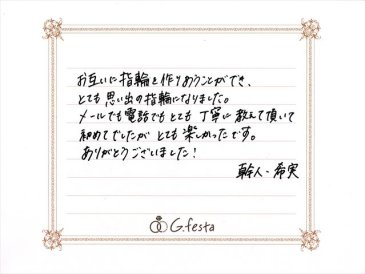 お互いに指輪を作りあうことができ、
とても思い出の指輪になりました。
メールでも電話でもとても丁寧に教えて頂いて
初めてでしたがとても楽しかったです。
ありがとうございました！
幹人・希実
G.festa